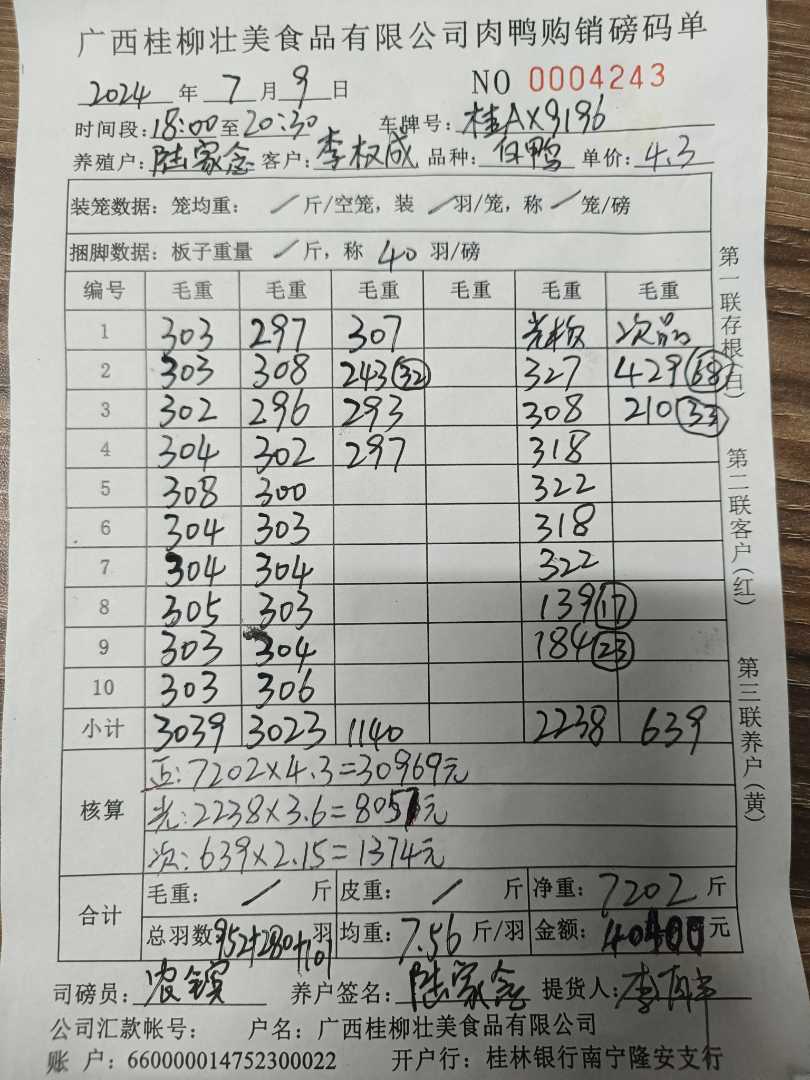 广西桂柳壮美食品有限公司肉鸭购销磅码单
2024 年 7 月 9 日 NO 0004243
时间段:18:00至20:30 车牌号:桂AX9196
养殖户:陆家念 客户:李权成 品种:白鸭 单价:4.3
装笼数据:笼均重: / 斤/空笼,装 / 羽/笼,称 / 笼/磅
捆脚数据:板子重量 / 斤,称 40 羽/磅
编号 毛重 毛重 毛重 毛重 毛重 毛重
1 303 297 307 光板 次品
2 303 308 243(32) 327 429(68)
3 302 296 293 308 210(33)
4 304 302 297 318
5 308 300 322
6 304 303 318
7 304 304 322
8 305 303 139(17)
9 303 304 184(23)
10 303 306
小计 3039 3023 1140 2238 639
核算
正:7202×4.3=30969元
光:2238×3.6=8057元
次:639×2.15=1374元
合计
毛重: / 斤 皮重: / 斤 净重:7202 斤
总羽数952+280+101羽 均重:7.56 斤/羽 金额:40400元
司磅员:农 养户签名:陆家念 提货人:李
公司汇款帐号: 户名:广西桂柳壮美食品有限公司
账 户:660000014752300022 开户行:桂林银行南宁隆安支行
第一联存根(白)
第二联客户(红)
第三联养户(黄)